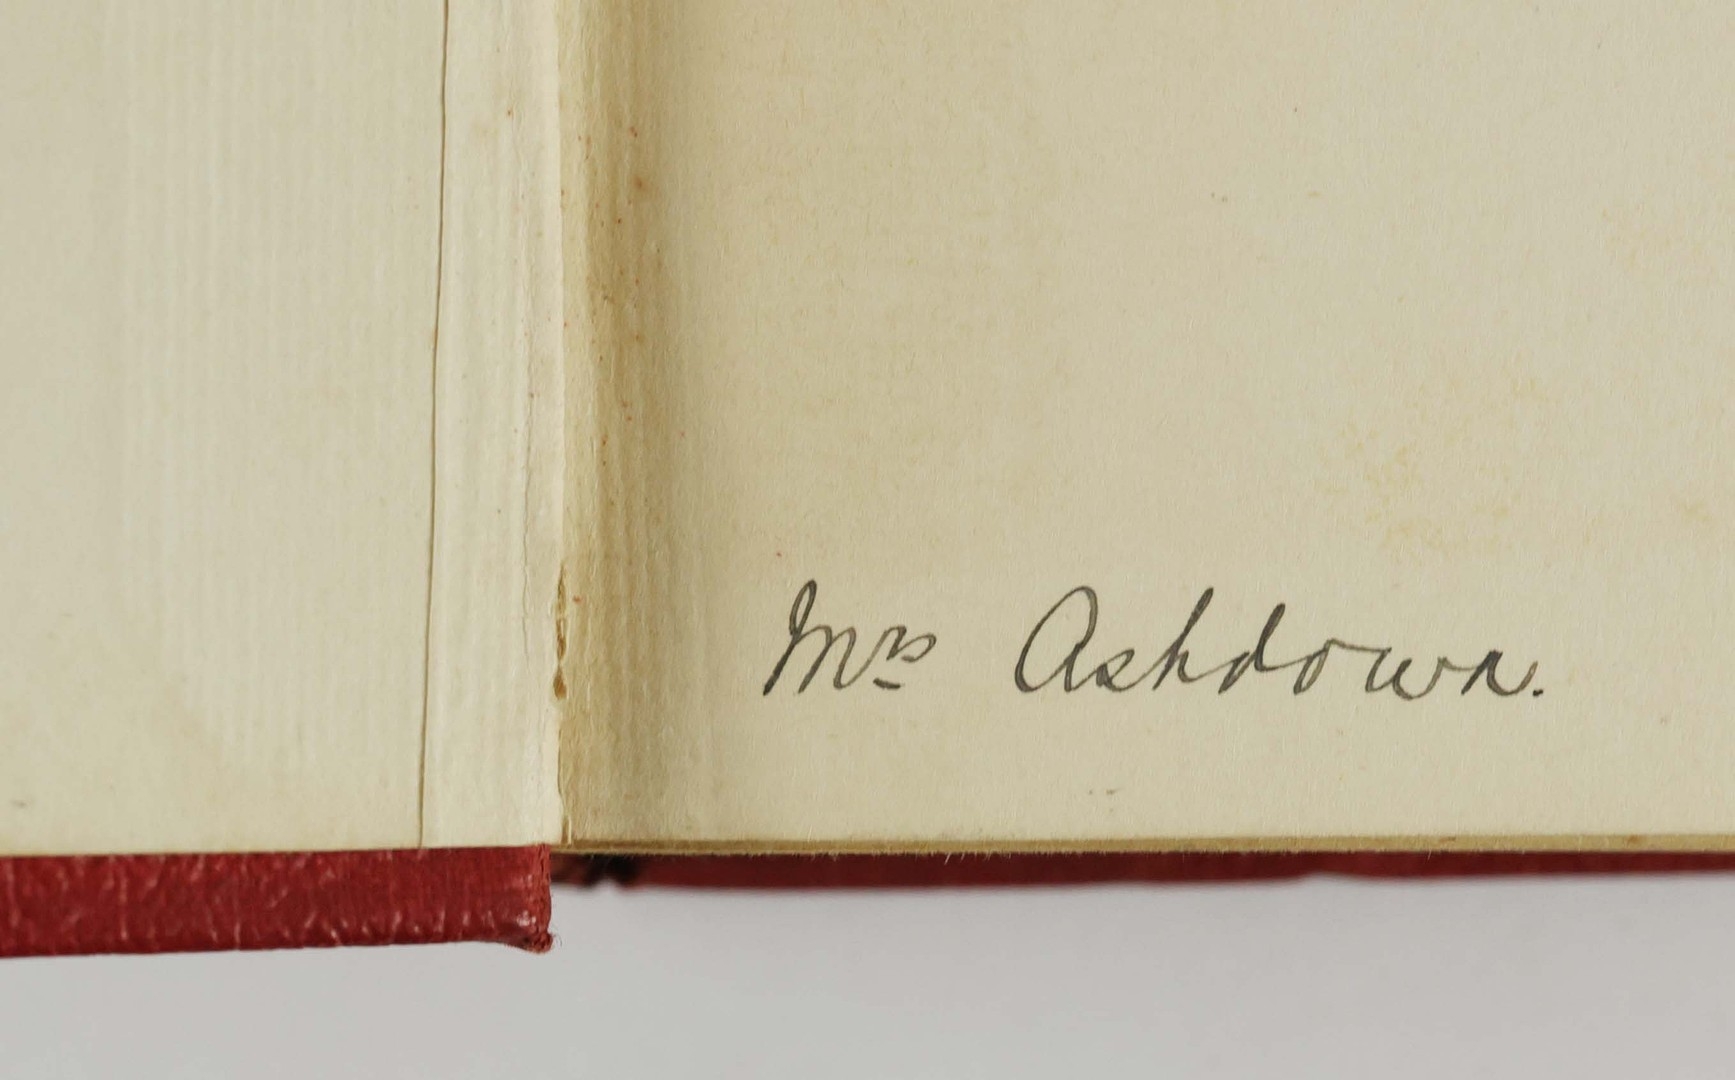 Mrs Ashdown.